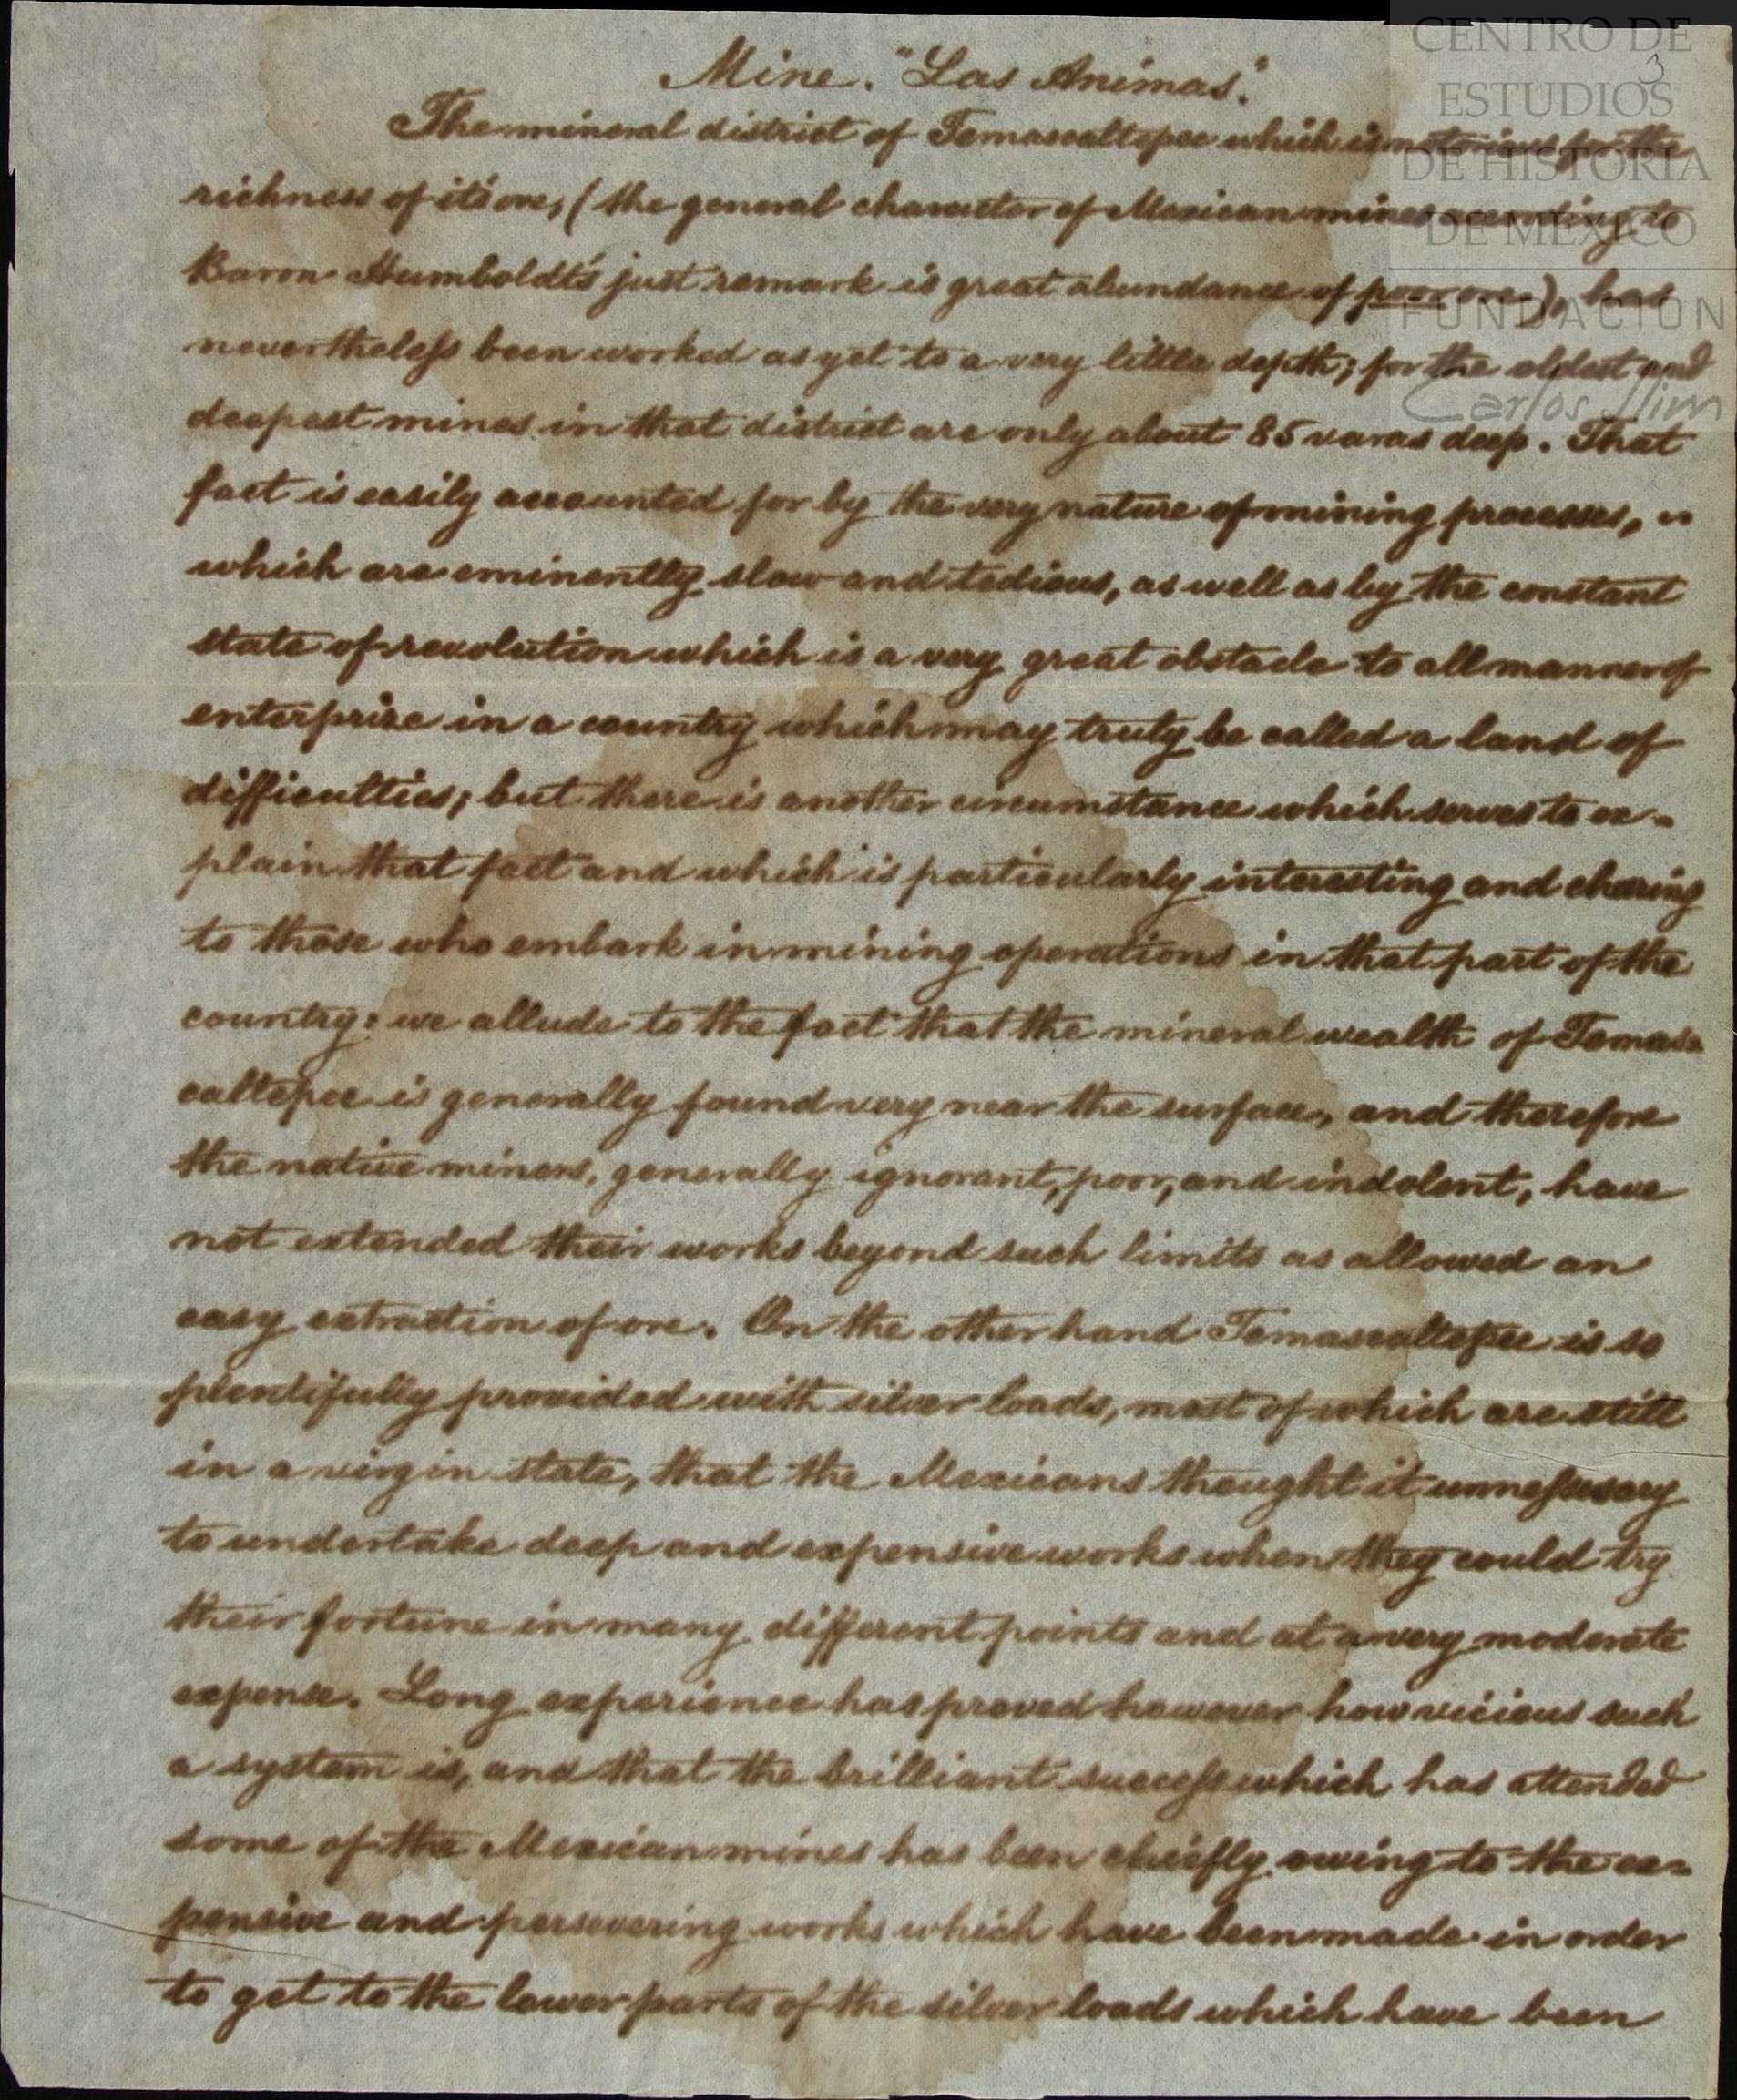 CENTRO DE
ESTUDIOS
DE HISTORIA
DE MÉXICO
FUNDACIÓN
Carlos Slim
3
Mine. "Las Animas."
The mineral district of Temascaltepec which is notorious for the
richness of it's ore, (the general character of Mexican mines according to
Baron Humboldt's just remark is great abundance of poor ore), has
nevertheless been worked as yet to a very little depth; for the oldest and
deepest mines in that district are only about 85 varas deep. That
fact is easily accounted for by the very nature of mining processes,
which are eminently slow and tedious, as well as by the constant
state of revolution which is a very great obstacle to all manner of
enterprize in a country which may truly be called a land of
difficulties; but there is another circumstance which serves to ex-
plain that fact and which is particularly interesting and chearing
to those who embark in mining operations in that part of the
country: we allude to the fact that the mineral wealth of Temas=
caltepec is generally found very near the surface, and therefore
the native miners, generally ignorant, poor, and indolent, have
not extended their works beyond such limits as allowed an
easy extraction of ore. On the other hand Temascaltepec is so
plentifully provided with silver loads, most of which are still
in a virgin state, that the Mexicans thought it unnessesary
to undertake deep and expensive works when they could try
their fortune in many different points and at a very moderate
expense. Long experience has proved however how vicious such
a system is, and that the brilliant success which has attended
some of the Mexican mines has been chiefly owing to the ex=
pensive and persevering works which have been made in order
to get to the lower parts of the silver loads which have been